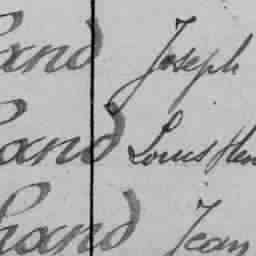 and Joseph
and Louis Hen
hand Jean